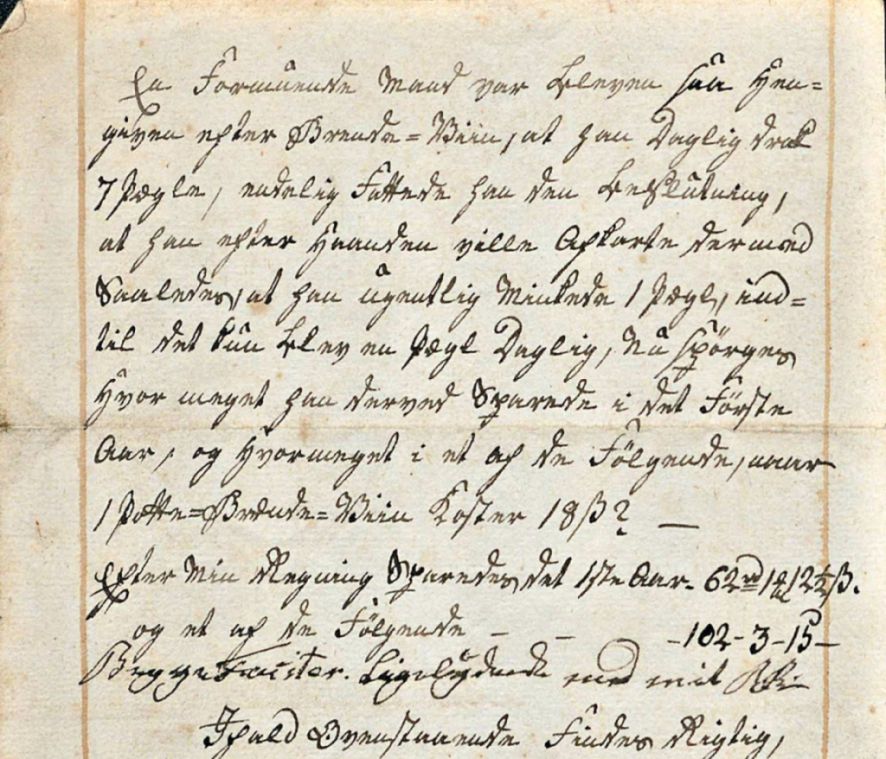 En Formuende Mand var bleven saa Hen=
given efter Brende=Viin, at han Daglig drak
7 Pægle, endelig Fattede han den beslutning,
at han efter Haanden ville Afkorte dermed
Saaledes, at han ugentlig Minkede 1 Pægl, ind=
til det kun blev en Pægl Daglig, Nu spörges
Hvor meget han derved Sparede i det Förste
Aar, og Hvormeget i et af de Fölgende, naar
1 Potte=Brænde=Viin Koster 18 ß? —
Efter Min Regning Sparedes det 1ste Aar. 62 rd 1 12½ ß.
og et af de Fölgende - - - 102 - 3 - 15 -
Begge Faciter. Ligelydende med mit
Ifald Ovenstaaende Findes Rigtig,